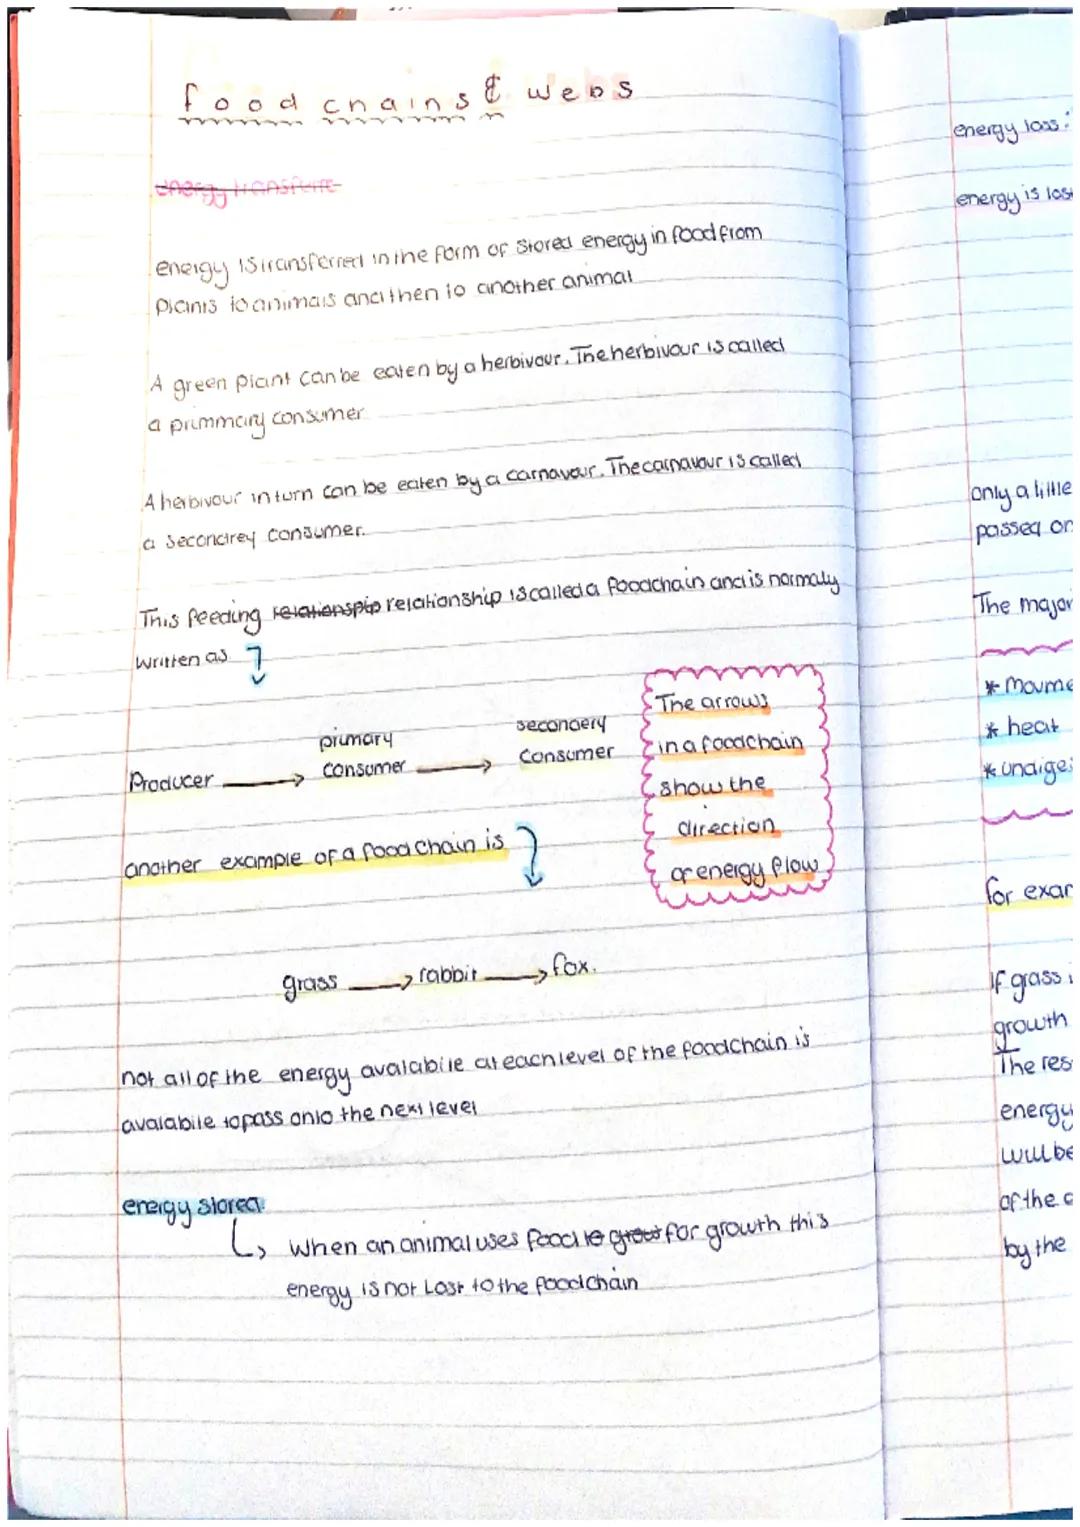 food chains & webs
energy transferre
energy is transferred in the form of stored energy in food from
plants to animals and then to another animal
A green plant can be eaten by a herbivour. The herbivour is called
a primmary consumer
A herbivour in turn can be eaten by a carnavour. The carnavour is called
a secondrey consumer.
This feeding relationspip relationship is called a foodchain and is normaly
written as
Producer → primary consumer → secondery consumer
The arrows
in a foodchain
show the
direction
of energy flow
another example of a food chain is
grass → rabbit → fox.
not all of the energy avalabile at each level of the foodchain is
avalabile to pass onto the next level
energy stored
↳ when an animal uses food to grow for growth this
energy is not Lost to the foodchain
energy loss:
energy is los
only a little
passed on
The major
* Movme
* heat
* undiges
for exam
If grass i
growth
The res
energy
will be
of the
by the